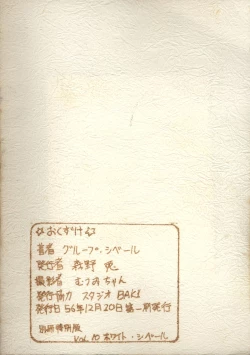 ☆おくづけ☆
著者 グループ・シベール
発行者 森野 兎
撮影者 むつおちゃん
発行協力 スタジオ BAKI
発行日 56年12月20日 第一刷発行
別冊特別版
Vol. 10 ホワイト・シベール